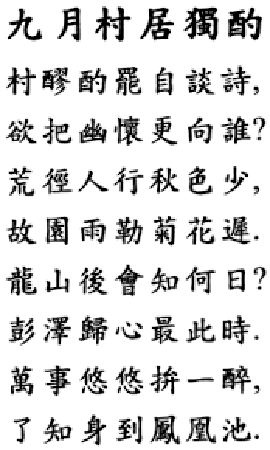 九月村居獨酌
村醪酌罷自談詩,
欲把幽懷更向誰?
荒徑人行秋色少,
故園雨勒菊花遲.
龍山後會知何日?
彭澤歸心最此時.
萬事悠悠拚一醉,
了知身到鳳凰池.